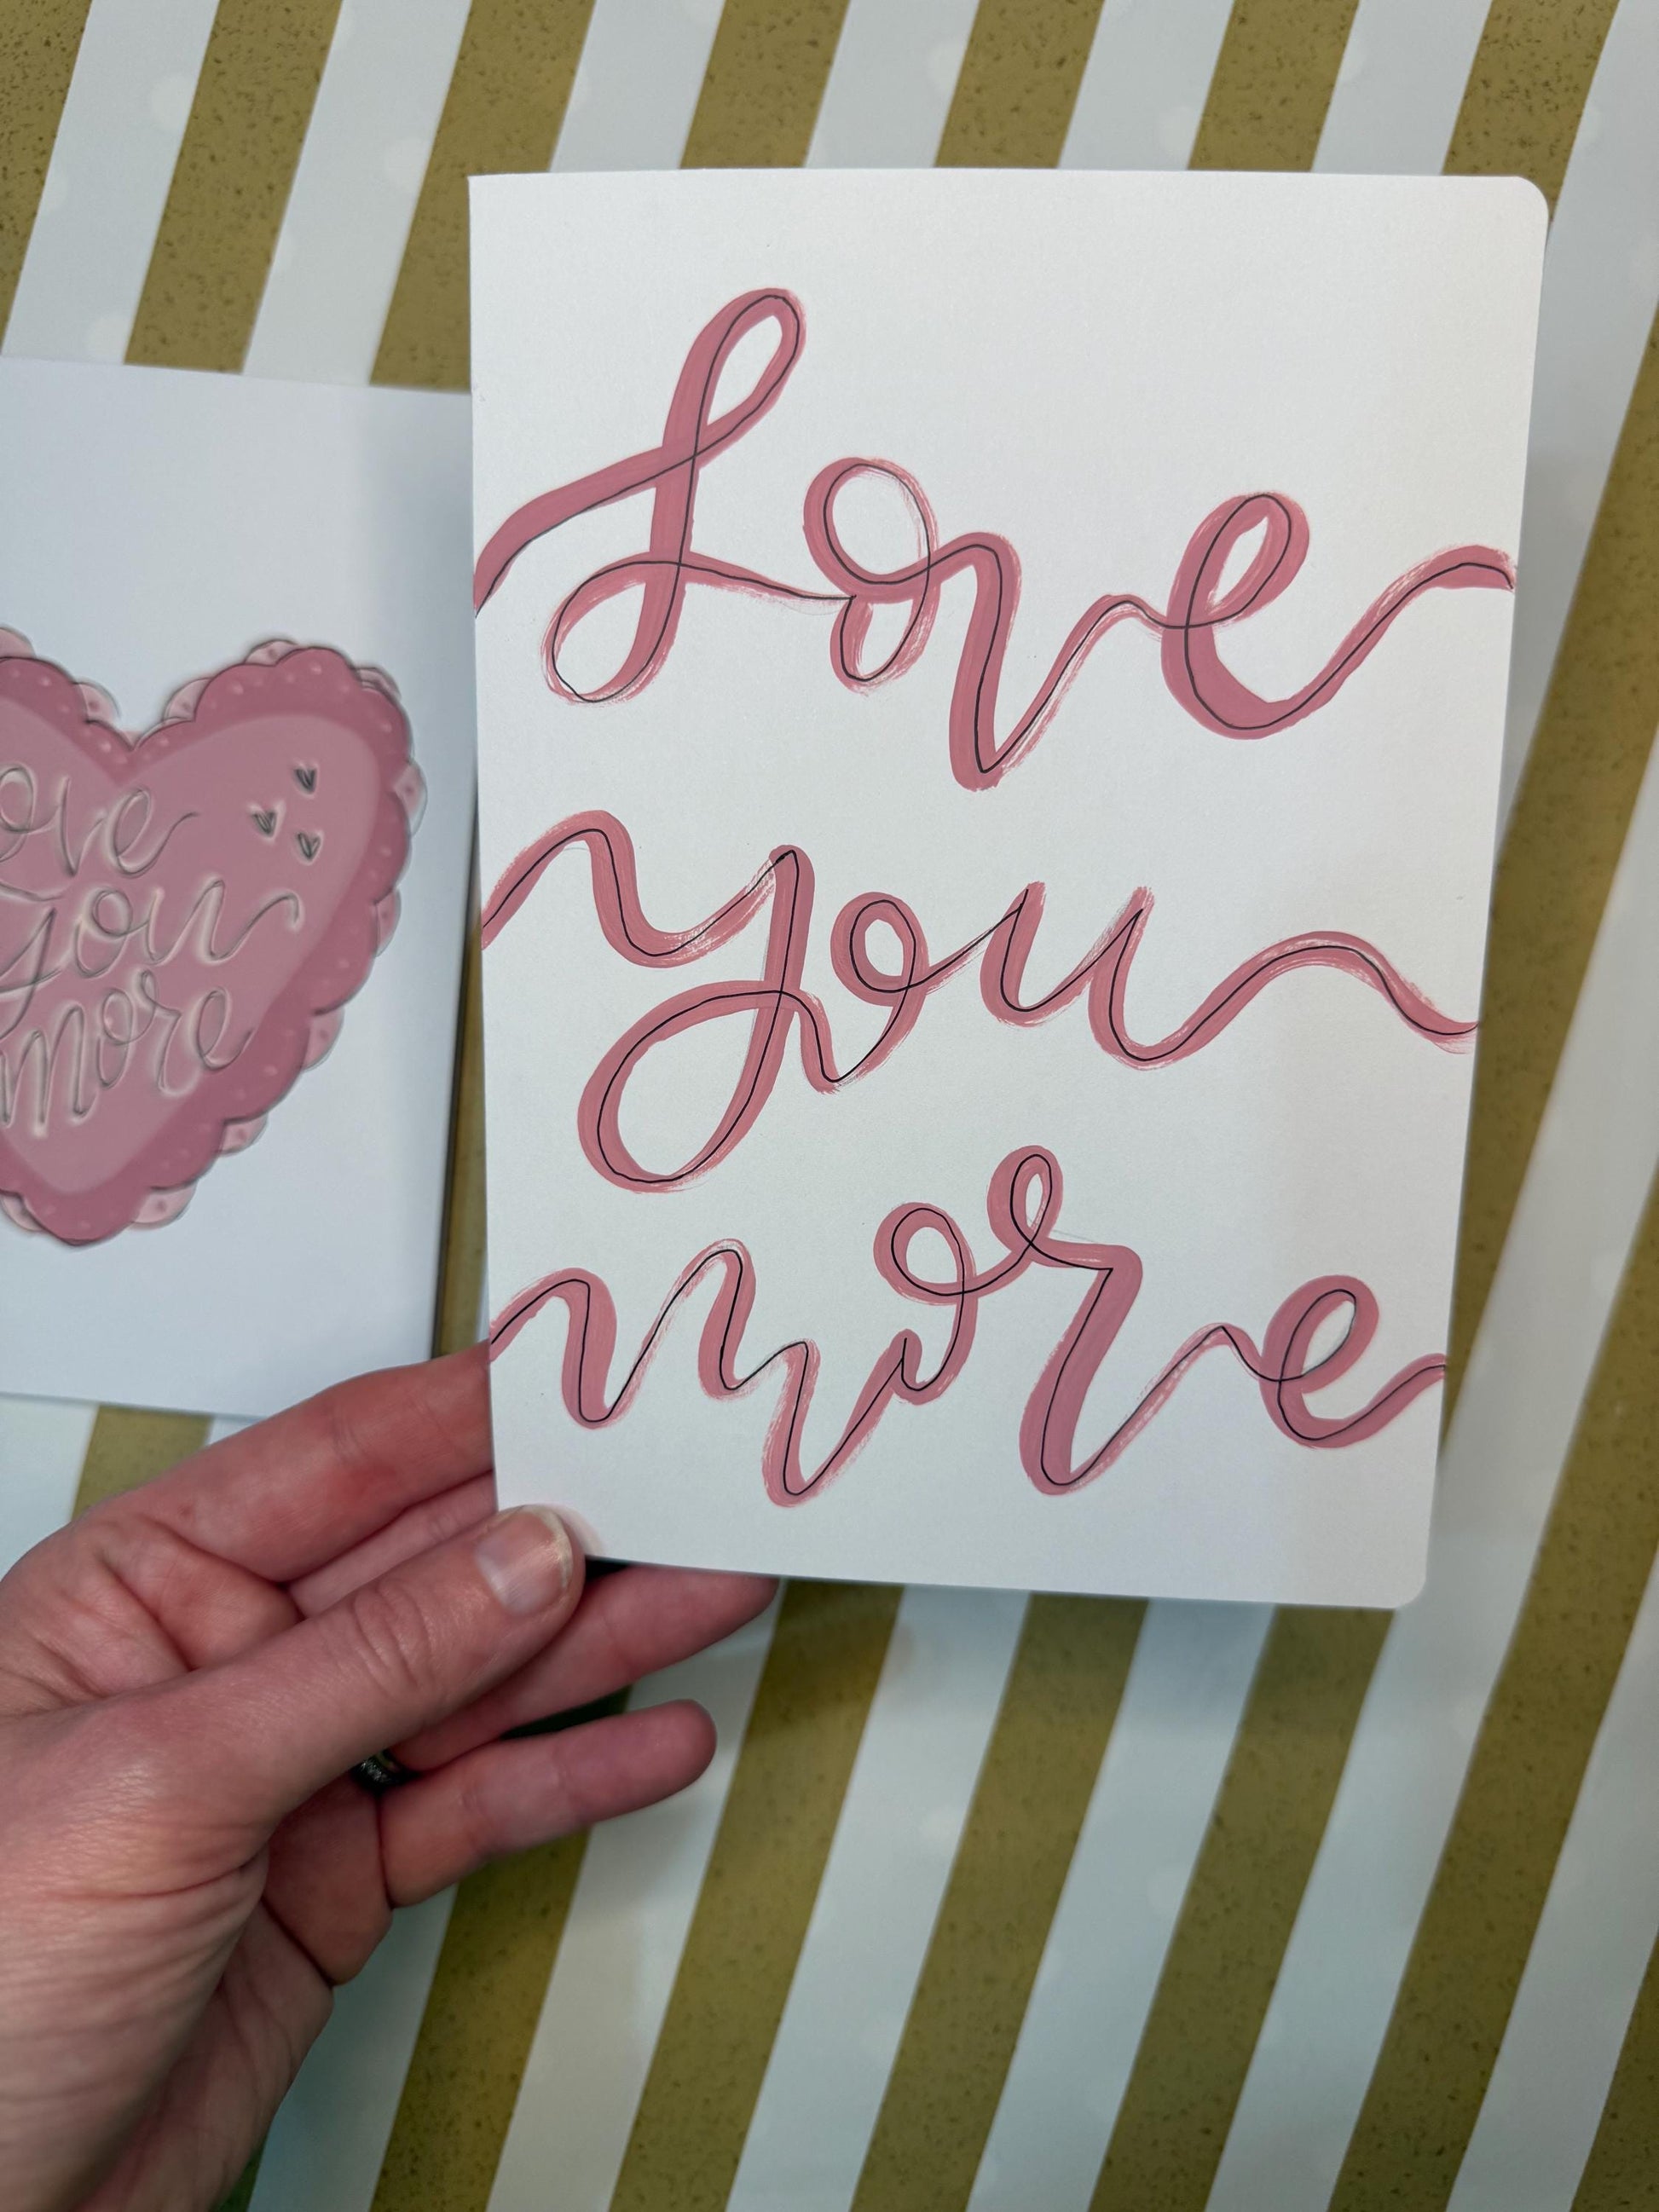 Love
you
more
love
you
more